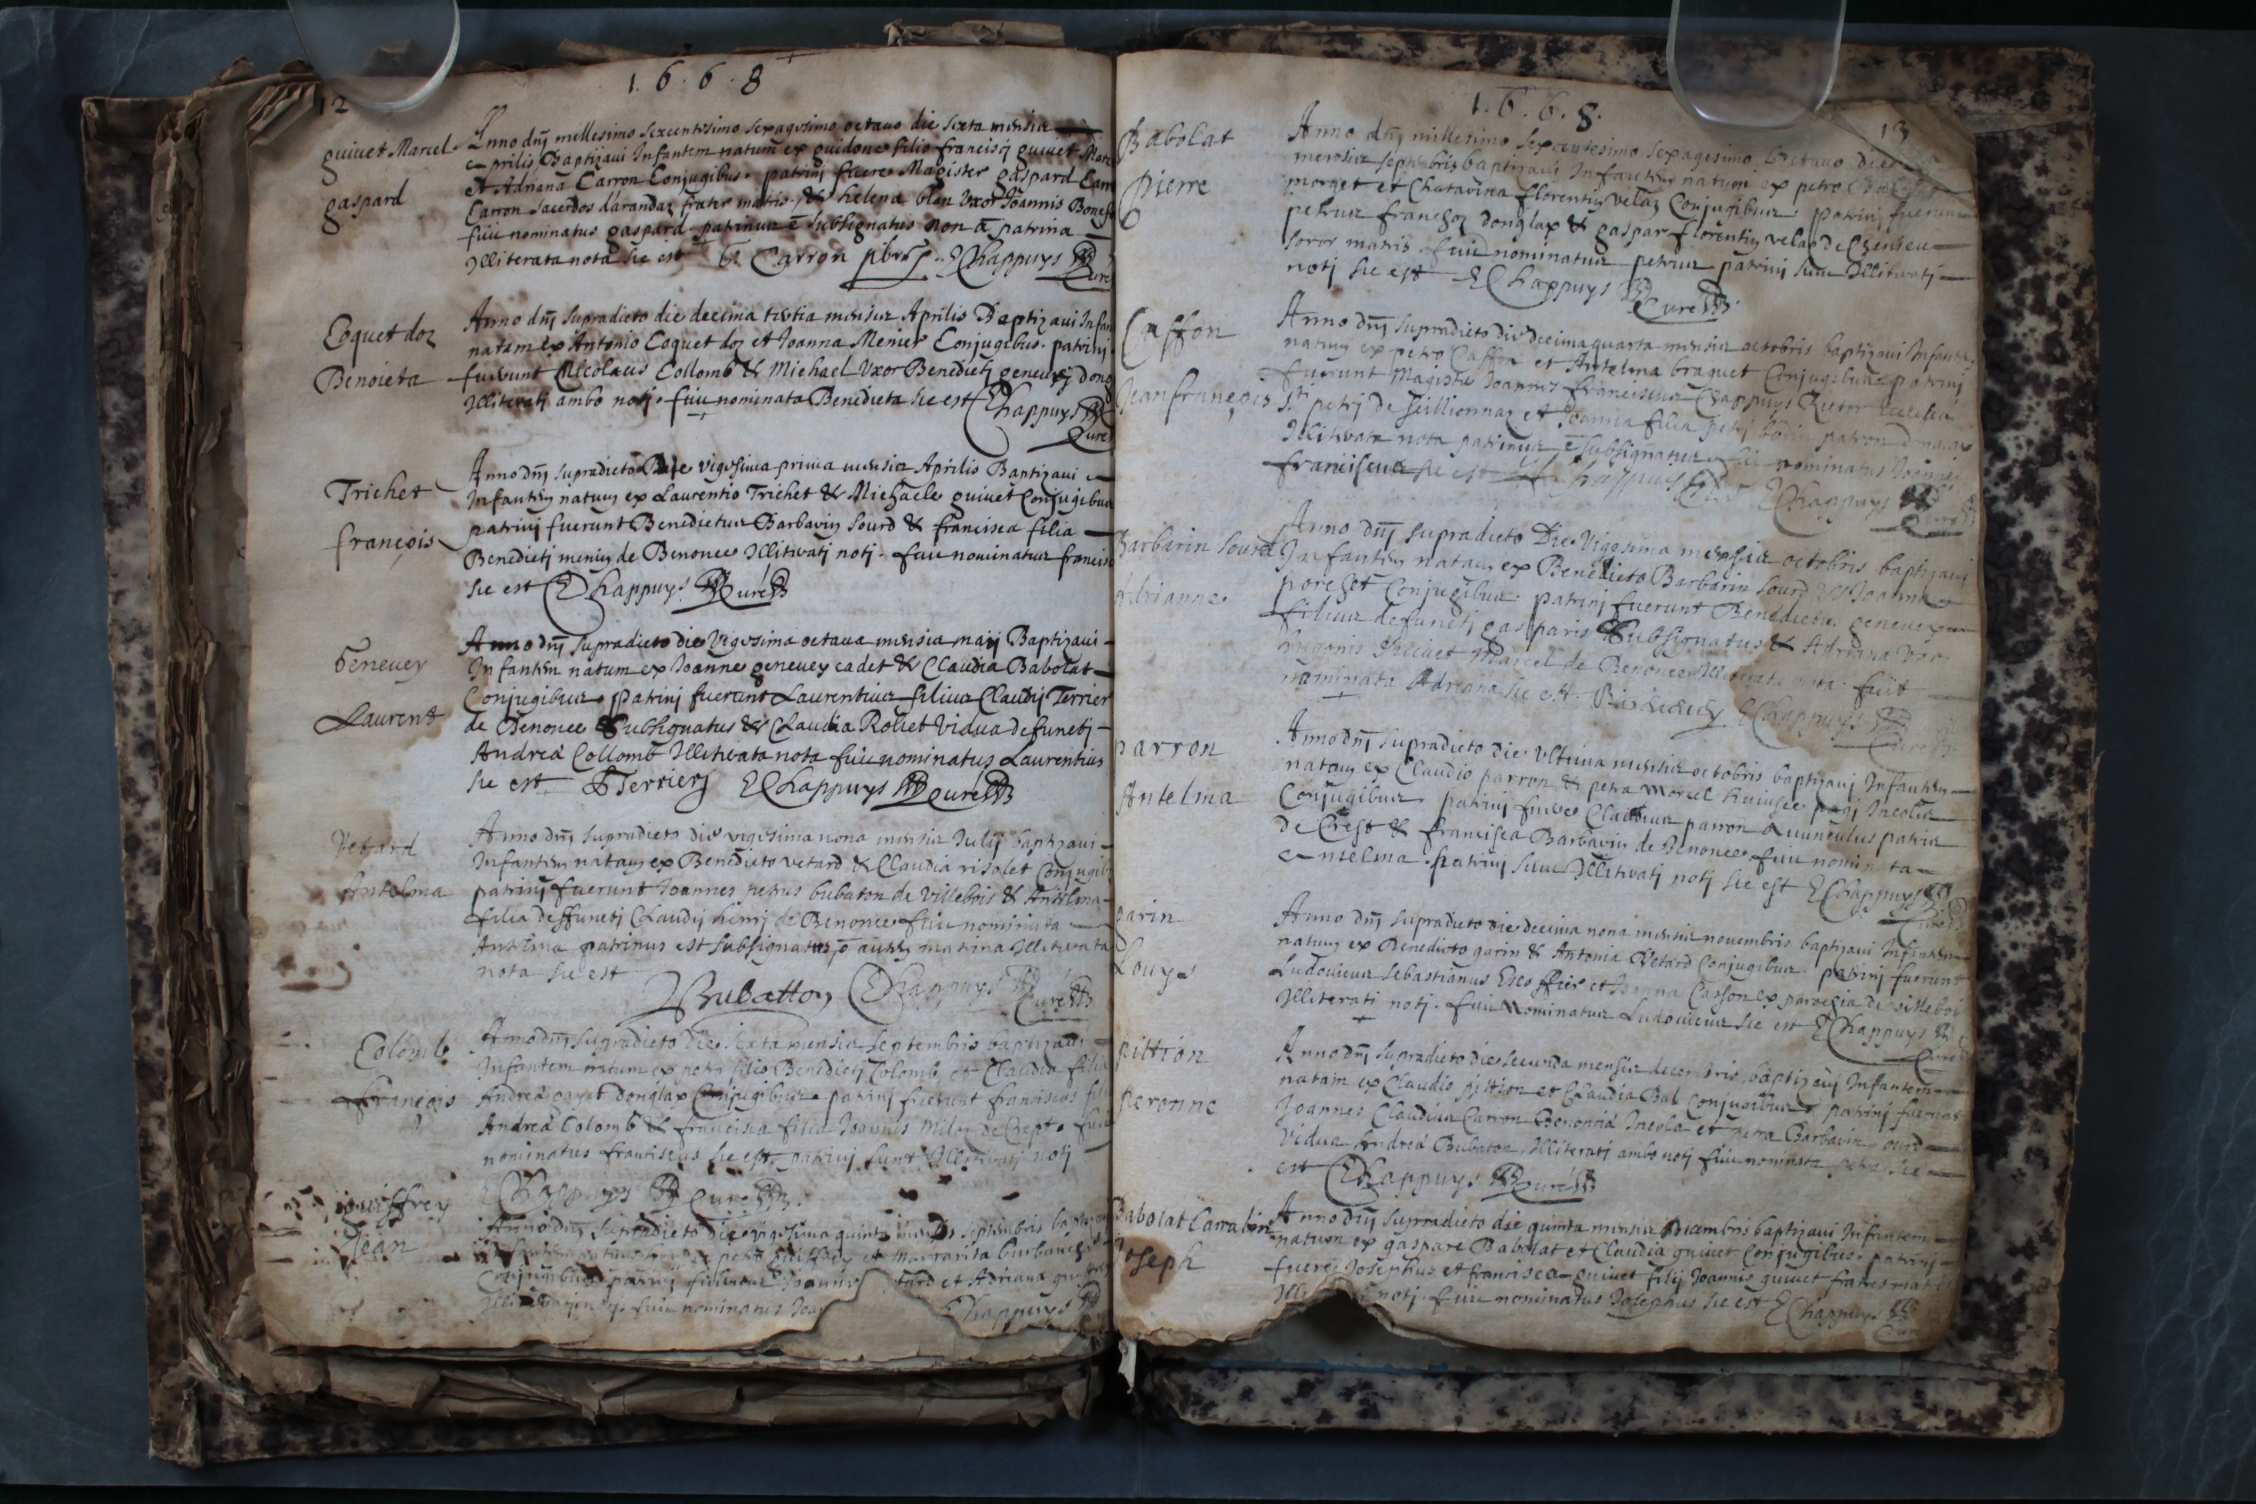 1.6.6.8
12
guiuet Marcel
gaspard
Anno dnj millesimo sexcentesimo sexagesimo octauo die sexta mensis
Aprilis Baptizaui Infantem natum ex guidone filio francisci guiuet Marc
et Adriana Carron Conjugibus. patrinj fuere Magister gaspard Carr
Carron sacerdos frater matris & helena vxor Joannis
fuit nominatus gaspard patrinus e subsignatus non a patrina
Illiterata nota sic est G Carron pbr Chappuys Curé
Coquet doz
Benoieta
Anno dnj supradicto die decima tertia mensis Aprilis Baptizaui Infan
natam ex Antonio Coquet doz et Joanna Menier Conjugibus. patrinj
fuerunt Nicolaus Collomb & Michael Vxor Benedicti geneuey dong
Illiterati ambo notj. fuit nominata Benedicta sic est Chappuys
Curé
Trichet
françois
Anno dnj supradicto Die vigesima prima mensis Aprilis Baptizaui
Infantem natum ex Laurentio Trichet & Michaele guiuet Conjugibus
patrinj fuerunt Benedictus Barbarin sourd & francisca filia
Benedicti de Benonce Illiterati notj. fuit nominatus francisc
sic est Chappuys Curé
Geneuey
Laurent
Anno dnj supradicto die Vigesima octaua mensis maij Baptizaui
Infantem natum ex Joanne geneuey cadet & Claudia Babolat
Conjugibus. patrinj fuerunt Laurentius filius Claudij Terrier
de Benonce subsignatus & Claudia Rollet Vidua defuncti
Andreá Collomb Illiterata nota fuit nominatus Laurentius
sic est Terrier Chappuys Curé
Vetard
Antelma
Anno dnj supradicto die vigesima nona mensis Julij baptizaui
Infantem natam ex Benedicto vetard & Claudia risolet Conjugib
patrinj fuerunt Joannes petrus bubaton de Villebois & Antelma
filia deffuncti Claudij henrj de Benonce fuit nominata
Antelma patrinus est subsignatus matrina Illiterata
nota sic est
Bubatton Chappuys Curé
Colomb
françois
Anno dnj supradicto Die Sexta mensis Septembris baptizaui
Infantem natum ex petro filio Benedicti Colomb et Claudia filia
Andreá donglax Conjugibus. patrinj fuerunt franciscus fili
Andreá Colomb & francisca filia Joannis de Crept. fuit
nominatus franciscus sic est, patrinj sunt Illiterati notj
Chappuys Curé
guiffrey
Jean
Anno dnj supradicto Die vigesima quinta mensis septembris
petro guiffrey et Margarita
Conjugibus patrinj fuerunt Joannes et Adriana
fuit nominatus Joan
Chappuys
1.6.6.8.
13
Babolat
Pierre
Anno dnj millesimo sexcentesimo sexagesimo Octauo die
mensis septembris baptizaui Infantem natum ex petro
morget et florentin velaz Conjugibus. patrinj fuerunt
petrus françoz donglax & gaspar florentin velaz de
soror matris fuit nominatus petrus patrinj sunt Illiterati
notj sic est Chappuys
Curé
Caffon
Jeanfrançois
Anno dnj supradicto die decima quarta mensis octobris baptizaui Infante
natum ex petro Caffon et Antelma braquet Conjugibus. patrinj
fuerunt Magister Joannes franciscus Chappuys Rector
Sti petrj de Seillionnaz et Joanna filia petrj
Illiterata nota patrinus e subsignatus nominatus Joannes
franciscus sic est Chappuys Chappuys
Curé
Barbarin sourd
Adrianne
Anno dnj supradicto Die Vigesima mensis octobris baptizaui
Infantem natam ex Benedicto Barbarin sourd & Joanna
Conjugibus. patrinj fuerunt Benedictus geneuey
filius defuncti gasparis subsignatus & Adriana Vxor
hugonis guiuet Marcel de Benonce Illiterata nota. fuit
nominata Adriana sic est. Chappuys
Curé
parron
Antelma
Anno dnj supradicto die Vltima mensis octobris baptizaui Infantem
natam ex Claudio parron & petra Morcel huiusce pagi Incolis
Conjugibus. patrinj fuere Claudius parron auunculus patris
de Crest & francisca Barbarin de Benonce fuit nominata
Antelma. patrinj sunt Illiterati notj sic est Chappuys
Curé
garin
Louys
Anno dnj supradicto die decima nona mensis nouembris baptizaui Infantem
natum ex Benedicto garin & Antonia Vetard Conjugibus. patrinj fuerunt
Ludouicus Sebastianus Escoffier et Joanna Casson ex parrochia de Villeboi
Illiterati notj. fuit nominatus Ludouicus sic est Chappuys
Curé
pittion
peronne
Anno dnj supradicto die secunda mensis decembris baptizaui Infantem
natam ex Claudio pittion et Claudia Bal Conjugibus. patrinj fuerunt
Joannes Claudius Carron Incola et petra Barbarin sourd
Vidua Andreá Bubaton. Illiterati ambo notj fuit nominata petra sic
est Chappuys Curé
Babolat Carrabin
Joseph
Anno dnj supradicto die quinta mensis Decembris baptizaui Infantem
natum ex gaspare Babolat et Claudia guiuet Conjugibus. patrinj
fuere Josephus et francisca guiuet filij Joannis guiuet
notj. fuit nominatus Josephus sic est Chappuys
Curé